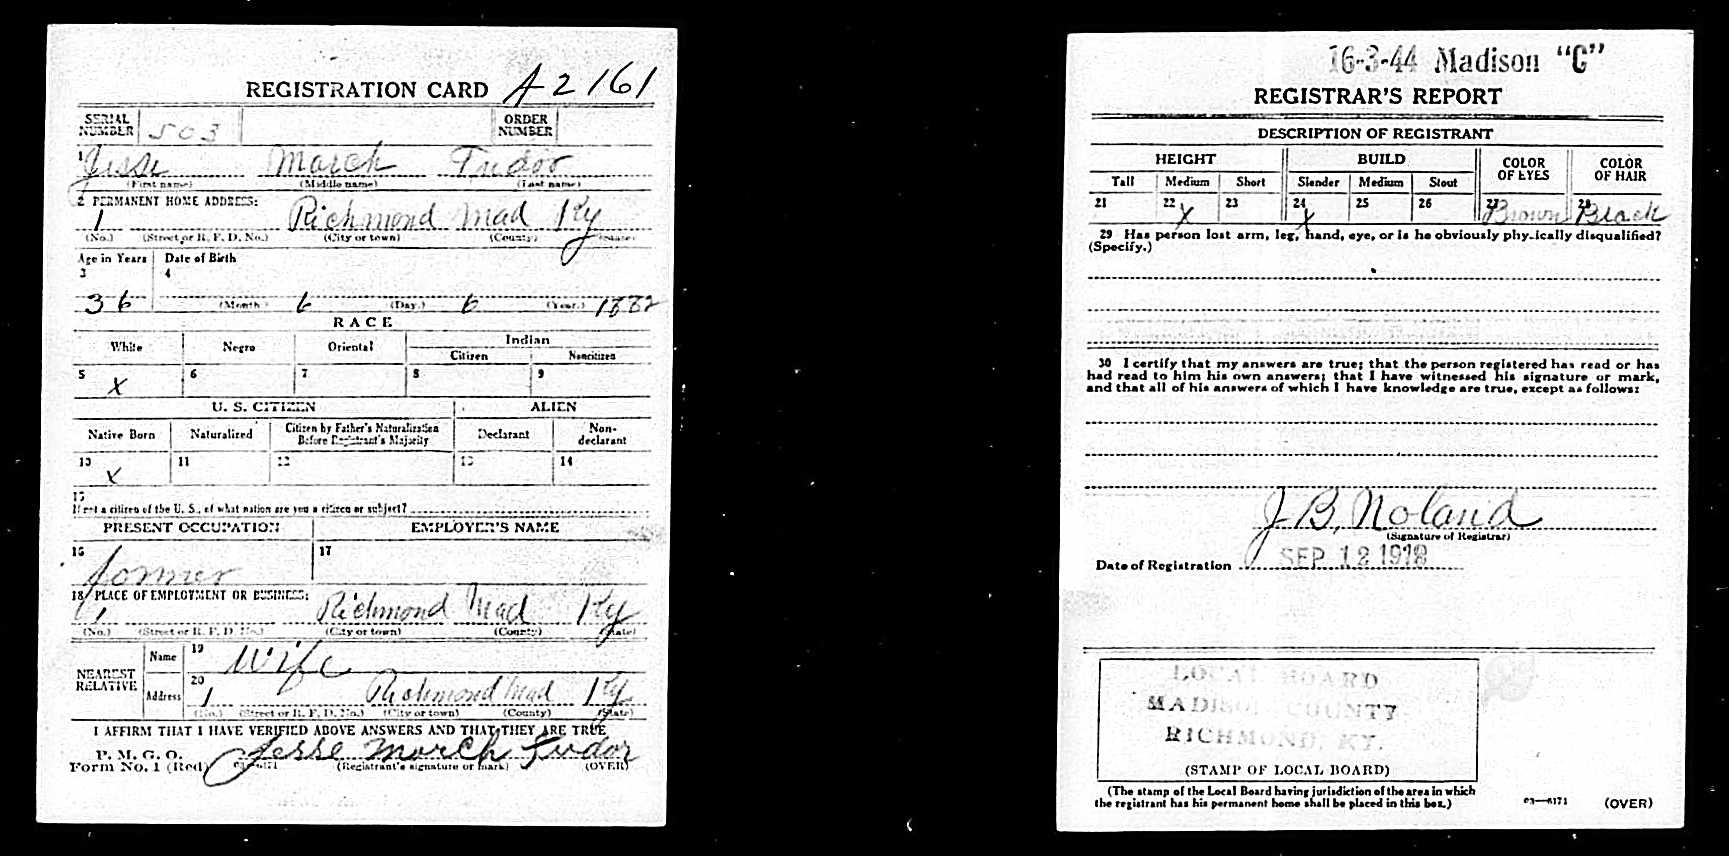 REGISTRATION CARD A2161
SERIAL NUMBER 503 ORDER NUMBER
1 Jesse March Tudor
(First name) (Middle name) (Last name)
2 PERMANENT HOME ADDRESS:
1 Richmond Mad Ky
(No.) (Street or R. F. D. No.) (City or town) (County) (State)
Age in Years Date of Birth
3 4
36 (Month.) 6 (Day.) 6 (Year.) 1882
RACE
White Negro Oriental Indian
Citizen Noncitizen
5 X 6 7 8 9
U. S. CITIZEN ALIEN
Native Born Naturalized Citizen by Father's Naturalization Before Registrant's Majority Declarant Non-declarant
10 X 11 12 13 14
15
If not a citizen of the U. S., of what nation are you a citizen or subject?
PRESENT OCCUPATION EMPLOYER'S NAME
16 farmer 17
18 PLACE OF EMPLOYMENT OR BUSINESS:
1 Richmond Mad Ky
(No.) (Street or R. F. D. No.) (City or town) (County) (State)
NEAREST RELATIVE Name 19 Wife
Address 20 1 Richmond Mad Ky
(No.) (Street or R. F. D. No.) (City or town) (County) (State)
I AFFIRM THAT I HAVE VERIFIED ABOVE ANSWERS AND THAT THEY ARE TRUE
P. M. G. O.
Form No. 1 (Red) Jesse March Tudor
(Registrant's signature or mark) (OVER)
16-3-44 Madison "C"
REGISTRAR'S REPORT
DESCRIPTION OF REGISTRANT
HEIGHT BUILD COLOR OF EYES COLOR OF HAIR
Tall Medium Short Slender Medium Stout
21 22 X 23 24 X 25 26 27 Brown 28 Black
29 Has person lost arm, leg, hand, eye, or is he obviously physically disqualified?
(Specify.)
30 I certify that my answers are true; that the person registered has read or has
had read to him his own answers; that I have witnessed his signature or mark,
and that all of his answers of which I have knowledge are true, except as follows:
J. B. Noland
(Signature of Registrar)
Date of Registration SEP 12 1918
LOCAL BOARD
MADISON COUNTY
RICHMOND, KY.
(STAMP OF LOCAL BOARD)
(The stamp of the Local Board having jurisdiction of the area in which
the registrant has his permanent home shall be placed in this box.)
03—6171 (OVER)